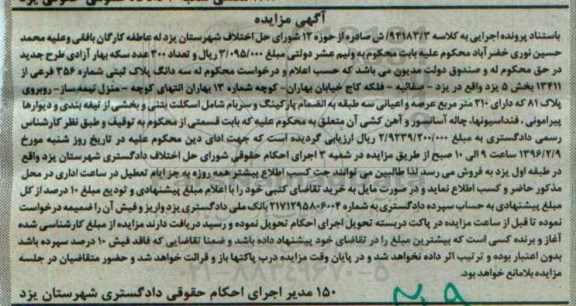 آگهی مزایده
باستناد پرونده اجرایی به کلاسه ۹۴۱۸۳/۳/ش صادره از حوزه ۱۳ شورای حل اختلاف شهرستان یزد له عاطفه کارگان بافقی وعلیه محمد
حسین نوری خضر آباد محکوم علیه بابت محکوم به ونیم عشر دولتی مبلغ ۳/۰۹۵/۰۰۰ ریال و تعداد ۳۰۰ عدد سکه بهار آزادی طرح جدید
در حق محکوم له و صندوق دولت مدیون می باشد که حسب اعلام و درخواست محکوم له سه دانگ پلاک ثبتی شماره ۳۵۶ فرعی از
۱۳۴۱۱ بخش ۵ یزد واقع در یزد - صفائیه - فلکه کاج خیابان بهاران- کوچه شماره ۱۳ بهاران انتهای کوچه - منزل نیمه ساز- روبروی
پلاک ۸۱ که دارای ۲۱۰ متر مربع عرصه و اعیانی سه طبقه به انضمام پارکینگ و سرپام شامل اسکلت بتنی و بخشی از تیغه بندی و دیوارها
پیرامونی ، فنداسیونها، چاله آسانسور و آهن کشی آن متعلق به محکوم علیه که بابت قسمتی از محکوم به توقیف و طبق نظر کارشناس
رسمی دادگستری به مبلغ ۲/۹۲۳۹/۲۰۰/۰۰۰ ریال ارزیابی گردیده است که جهت ادای دین محکوم علیه در تاریخ روز شنبه مورخ
۱۳۹۶/۲/۹ ساعت ۹ الی ۱۰ صبح از طریق مزایده در شعبه ۳ اجرای احکام حقوقی شورای حل اختلاف دادگستری شهرستان یزد واقع
در طبقه اول یزد به فروش می رسد لذا طالبین می توانند جت کسب اطلاع بیشتر همه روزه به جز ایام تعطیل در ساعت اداری در محل
مذکور حاضر و کسب اطلاع نماید و در صورت مایل به خرید تقاضای کتبی خود را با اعلام مبلغ پیشنهادی و تودیع مبلغ ۱۰ درصد از کل
مبلغ پیشنهادی به حساب سپرده دادگستری به شماره ۲۱۷۱۲۹۵۸۰۶۰۰۴ بانک ملی دادگستری یزد واریز و فیش آن را ضمیمه درخواست
نموده تا قبل از ساعت مزایده در پاکت دربسته تحویل اجرای احکام تحویل نموده و رسید دریافت دارند مزایده از مبلغ کارشناسی شده
آغاز و برنده کسی است که بیشترین مبلغ را در تقاضای خود پیشنهاد داده باشد و ضمنا تقاضایی که فاقد فیش ۱۰ درصد سپرده باشد
بدون اعتبار بوده و ترتیب اثر داده نخواهد شد و در پایان وقت مزایده درب پاکتها باز و قرائت خواهد شد و حضور متقاضیان در جلسه
مزایده بلامانع خواهد بود.
۱۵۰ مدیر اجرای احکام حقوقی دادگستری شهرستان یزد
۰۲۱-۸۸۳۴۹۶۷۰-۵